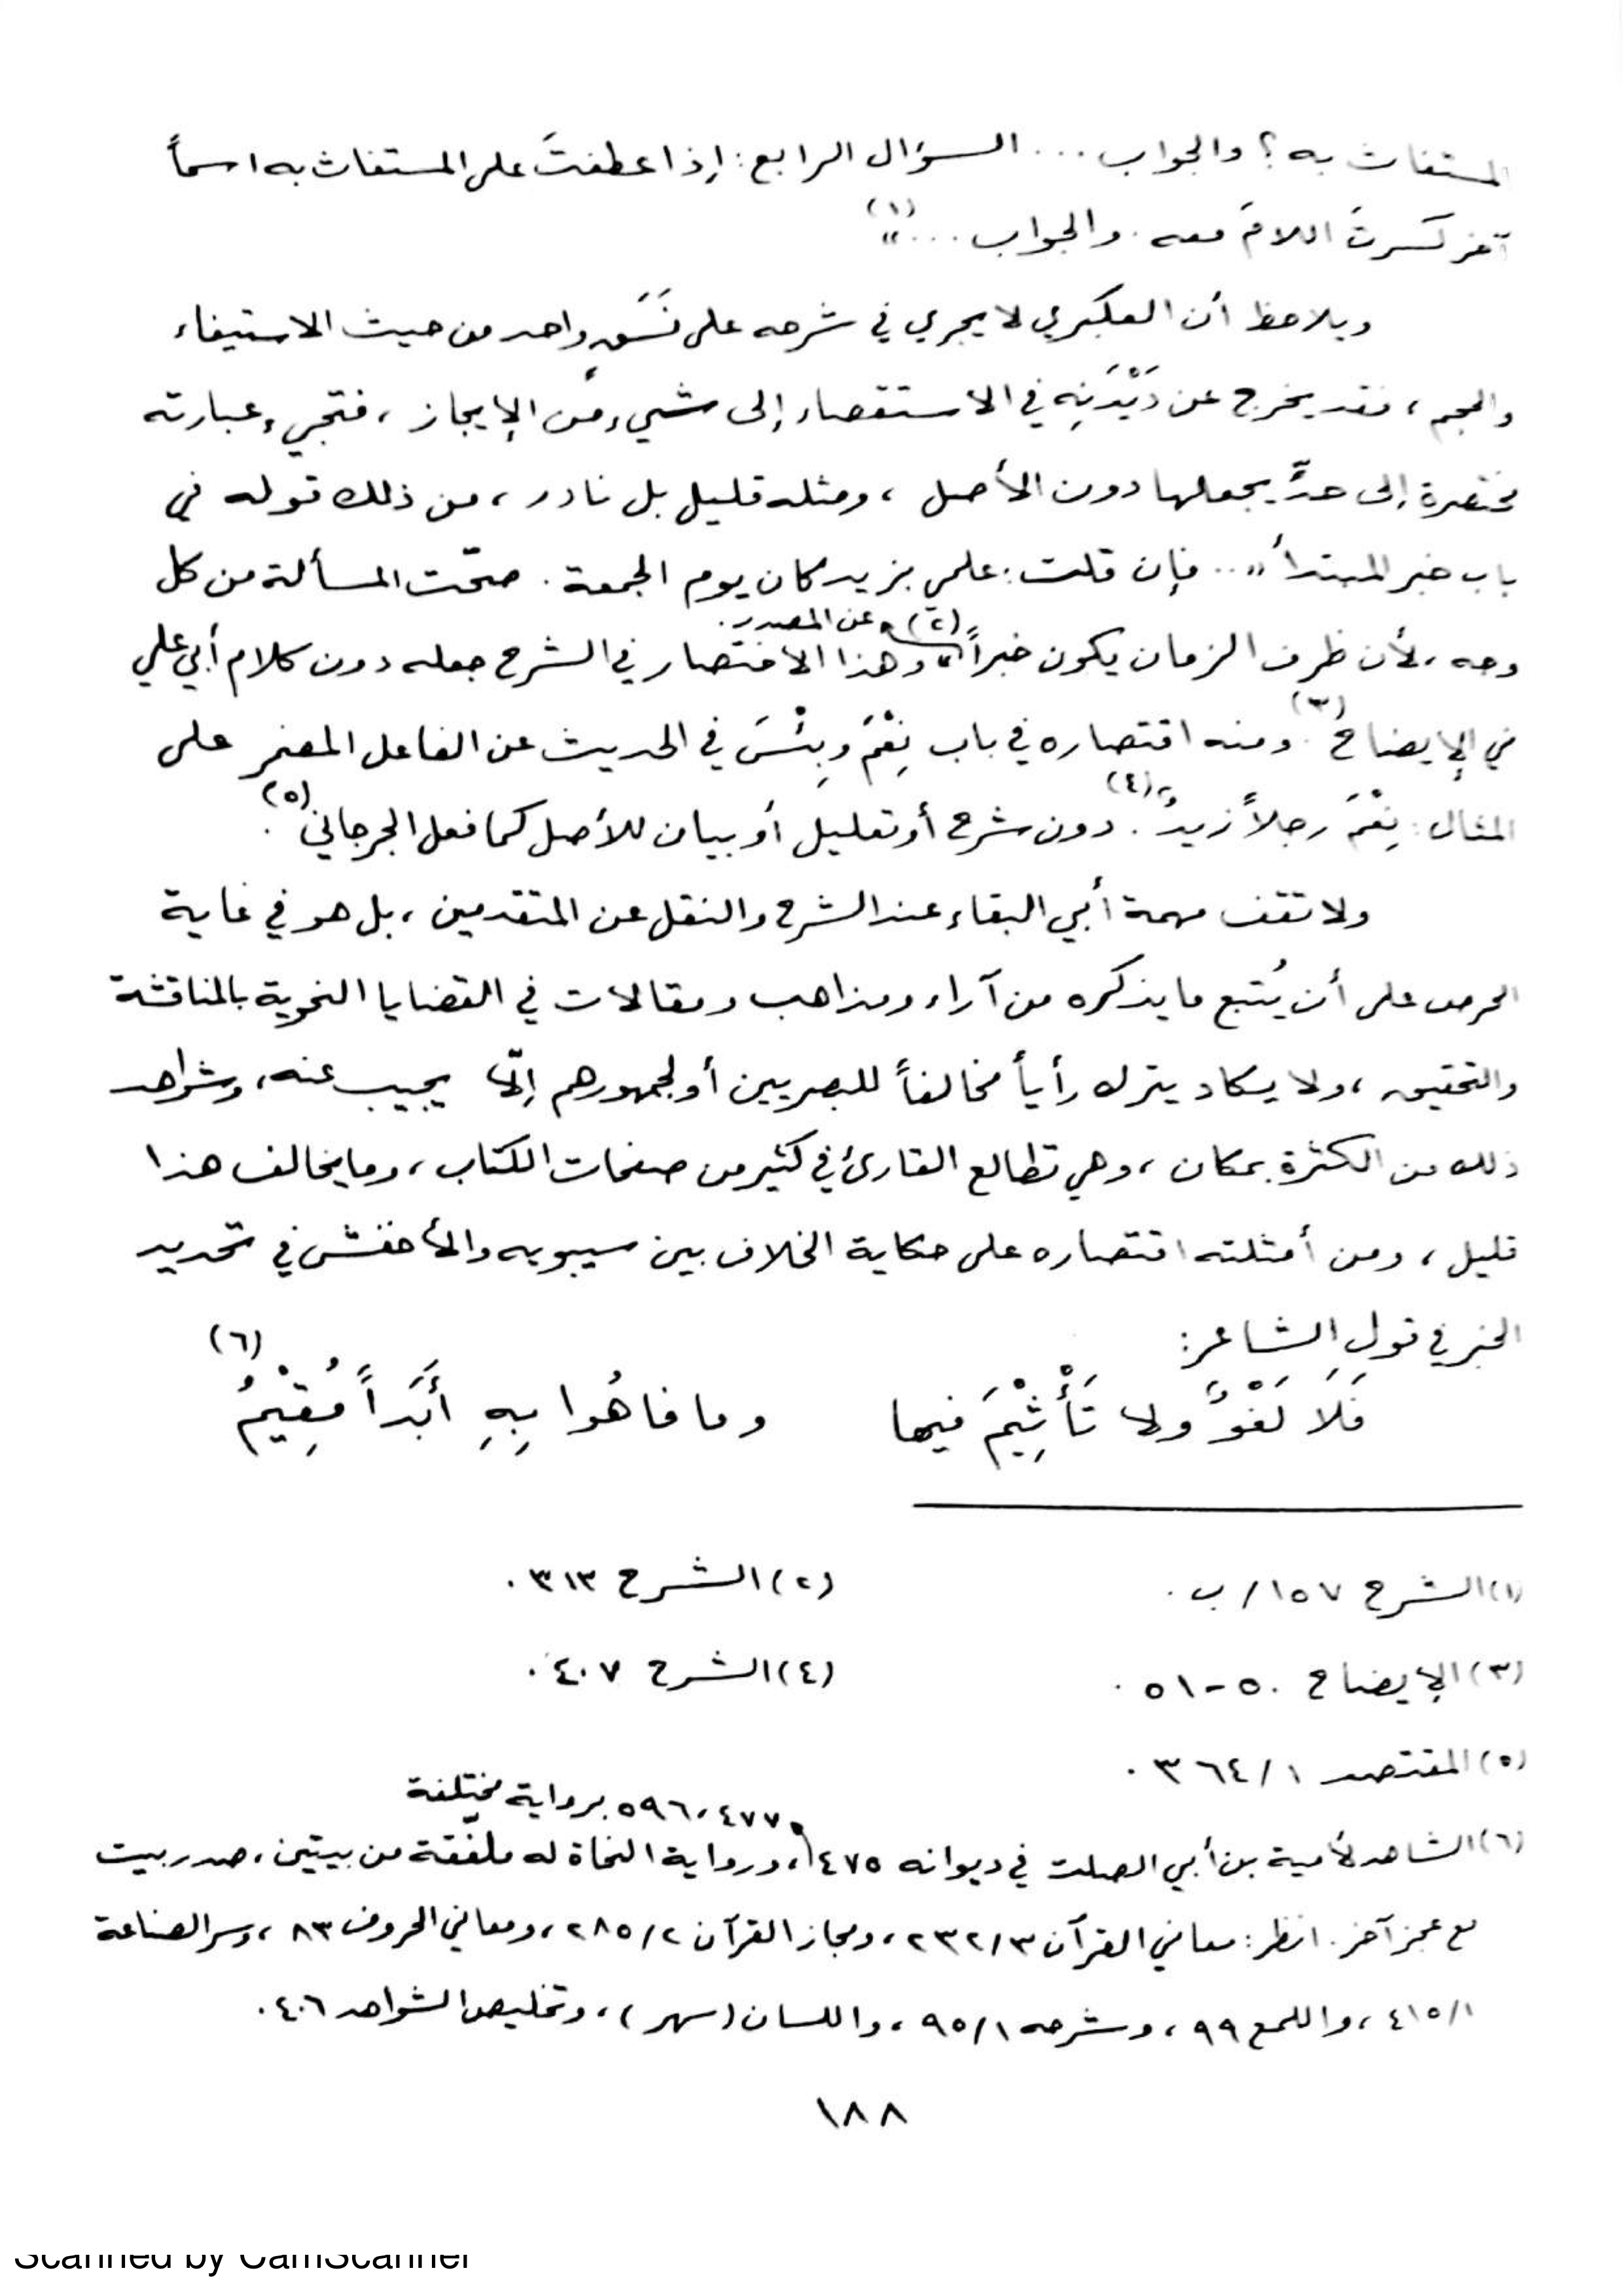 المستغاث به؟ والجواب... السؤال الرابع: إذا عطفتَ على المستغاث به اسماً
آخر كسرتَ اللامَ معه. والجواب...»(١)
ويلاحظ أن العكبري لا يجري في شرحه على نَسَقٍ واحد من حيث الاستيفاء
والحجم، فقد يخرج عن دَيْدَنِه في الاستقصاء إلى شيءٍ من الإيجاز، فتجيء عبارته
مختصرة إلى حدٍّ يجعلها دون الأصل، ومثله قليل بل نادر، من ذلك قوله في
باب خبر المبتدأ «... فإن قلت: علمي بزيد كان يوم الجمعة. صحّت المسألة من كل
وجه، لأن ظرف الزمان يكون خبراً عن المصدر.»(٢) وهذا الاختصار في الشرح جعله دون كلام أبي علي
في الإيضاح(٣). ومنه اقتصاره في باب نِعْمَ وبِئْسَ في الحديث عن الفاعل المضمر على
المثال: نِعْمَ رجلاً زيدٌ»(٤). دون شرح أو تعليل أو بيان للأصل كما فعل الجرجاني(٥).
ولا تقف مهمة أبي البقاء عند الشرح والنقل عن المتقدمين، بل هو في غاية
الحرص على أن يُتبع ما يذكره من آراء ومذاهب ومقالات في القضايا النحوية بالمناقشة
والتحقيق، ولا يكاد يترك رأياً مخالفاً للبصريين أو لجمهورهم إلّا يجيب عنه، وشواهد
ذلك من الكثرة بمكان، وهي تطالع القارئ في كثير من صفحات الكتاب، وما يخالف هذا
قليل، ومن أمثلته اقتصاره على حكاية الخلاف بين سيبويه والأخفش في تحديد
الخبر في قولِ الشاعر:
فَلَا لَغْوٌ ولا تَأْثِيْمَ فيها وما فاهُوا بِهِ أَبَداً مُقِيْمُ(٦)
(١) الشرح ١٥٧/ب. (٢) الشرح ٣١٣.
(٣) الإيضاح ٥٠-٥١. (٤) الشرح ٤٠٧.
(٥) المقتصد ٣٦٤/١.
(٦) الشاهد لأمية بن أبي الصلت في ديوانه ٤٧٥، ٤٧٧، ٥٩٦ برواية مختلفة، ورواية النحاة له ملفّقة من بيتين، صدر بيت
مع عجز آخر. انظر: معاني القرآن ٢٣٢/٣، ومجاز القرآن ٢٨٥/٢، ومعاني الحروف ٨٣، وسر الصناعة
٤١٥/١، واللمع ٩٩، وشرحه ٩٥/١، واللسان (سهر)، وتخليص الشواهد ٤٠٦.
١٨٨
Scanned by CamScanner